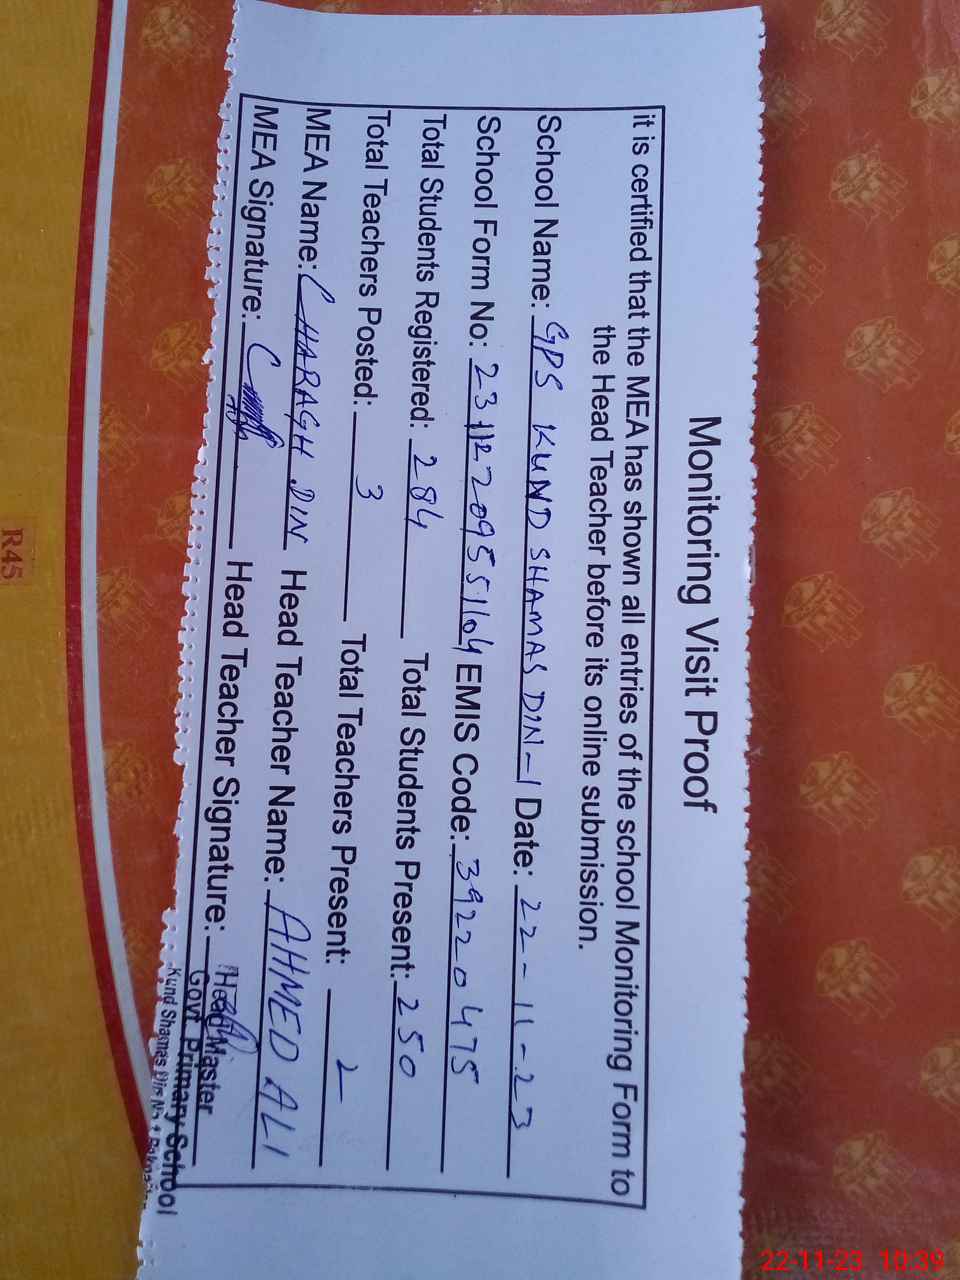 Monitoring Visit Proof
it is certified that the MEA has shown all entries of the school Monitoring Form to
the Head Teacher before its online submission.
School Name: GPS KUND SHAMAS DIN-1 Date: 22-11-23
School Form No: EMIS Code: 39220475
Total Students Registered: 284 Total Students Present: 250
Total Teachers Posted: 3 Total Teachers Present: 2
MEA Name: CHARAGH DIN Head Teacher Name: AHMED ALI
MEA Signature: Head Teacher Signature:
Head Master
Govt. Primary School
Kund Shamas Din No 1
R45
22-11-23 10:39